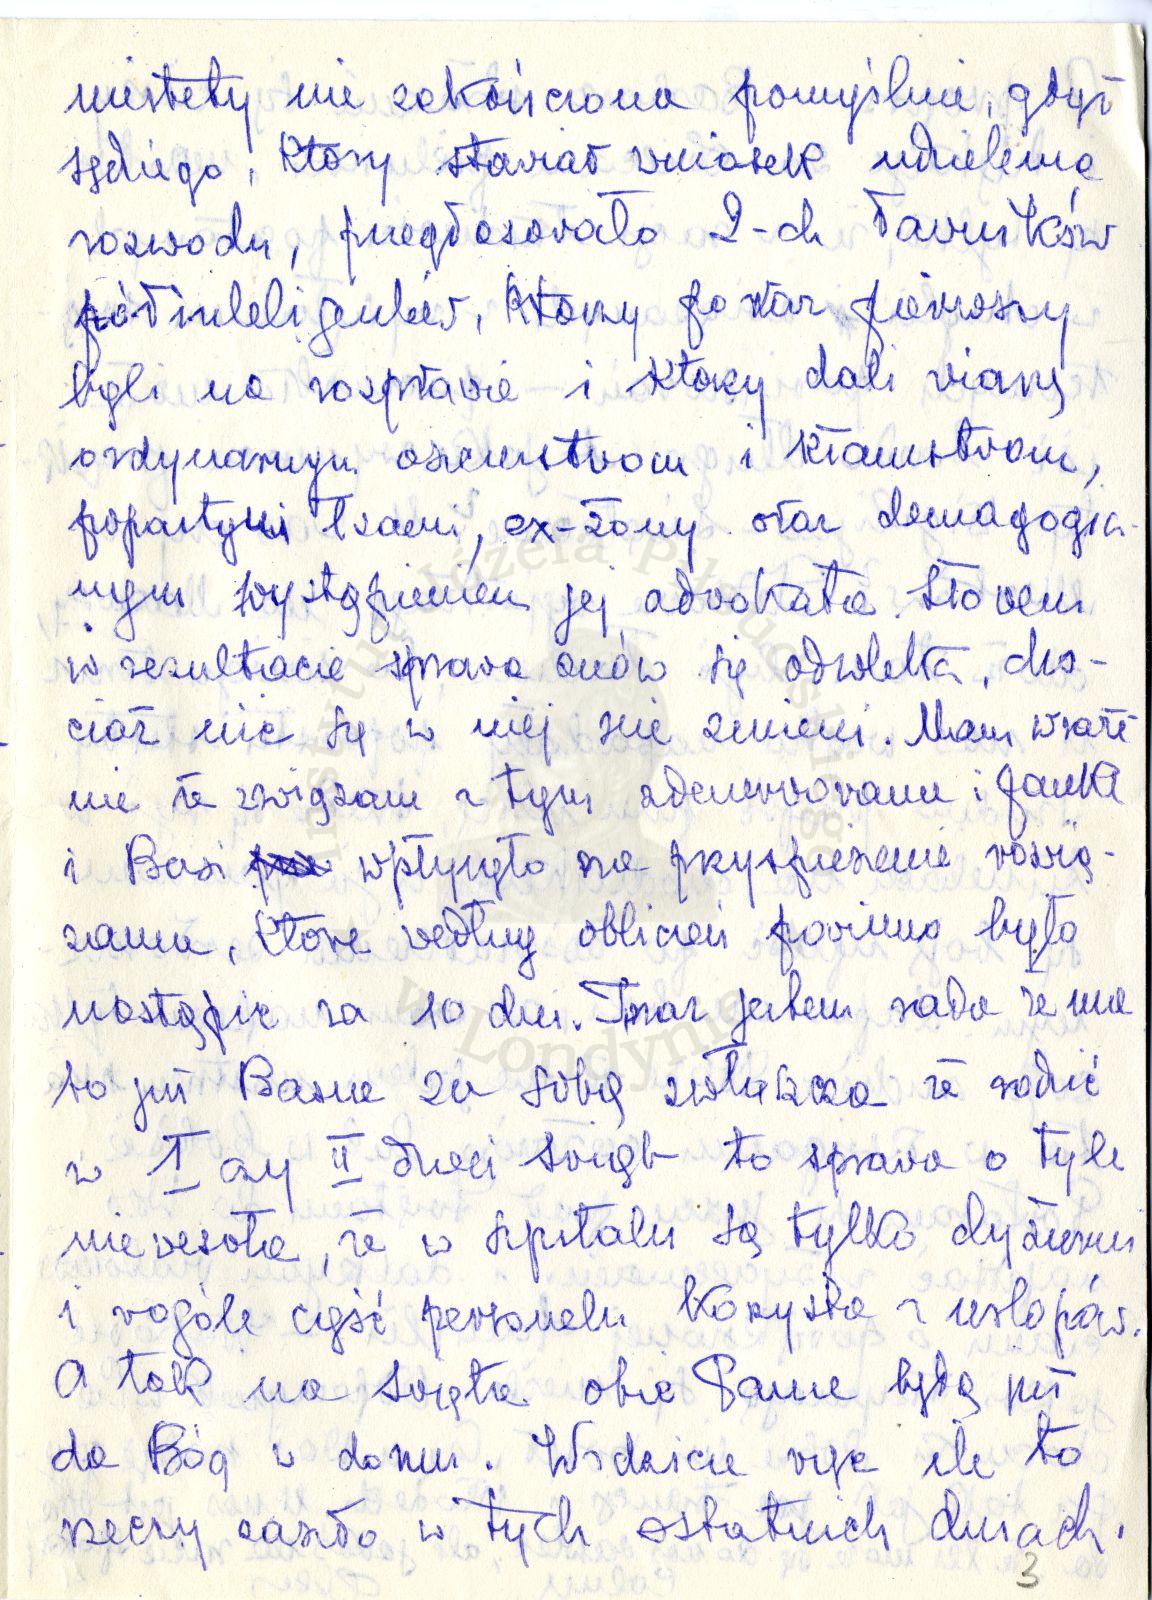 niestety nie zakończona pomyślnie, gdyż
sędziego, który stawiał wniosek udzielenia
rozwodu, przegłosowało 2-ch ławników
półinteligentów, którzy po raz pierwszy
byli na rozprawie i którzy dali wiarę
ordynarnym oszczerstwom i kłamstwom,
popartymi łzami, ex-żony oraz demagogicz-
nym wystąpieniem jej adwokata. Słowem
w rezultacie sprawa znów się odwlekła, cho-
ciaż nic się w niej nie zmieni. Mam wraże
nie że związane z tym zdenerwowanie i Janka
i Basi wpłynęło na przyspieszenie rozwią-
zania, które według obliczeń powinno było
nastąpić za 10 dni. Teraz jestem rada że ma
to już Basia za sobą zwłaszcza że rodzić
w I czy II dzień świąt to sprawa o tyle
niewesoła, że w szpitalu są tylko dyżurni
i wogóle część personelu korzysta z urlopów.
A tak na święta obie Panie będą już
da Bóg w domu. Widzicie więc ile to
rzeczy zaszło w tych ostatnich dniach.
3
Instytut Józefa Piłsudskiego
w Londynie